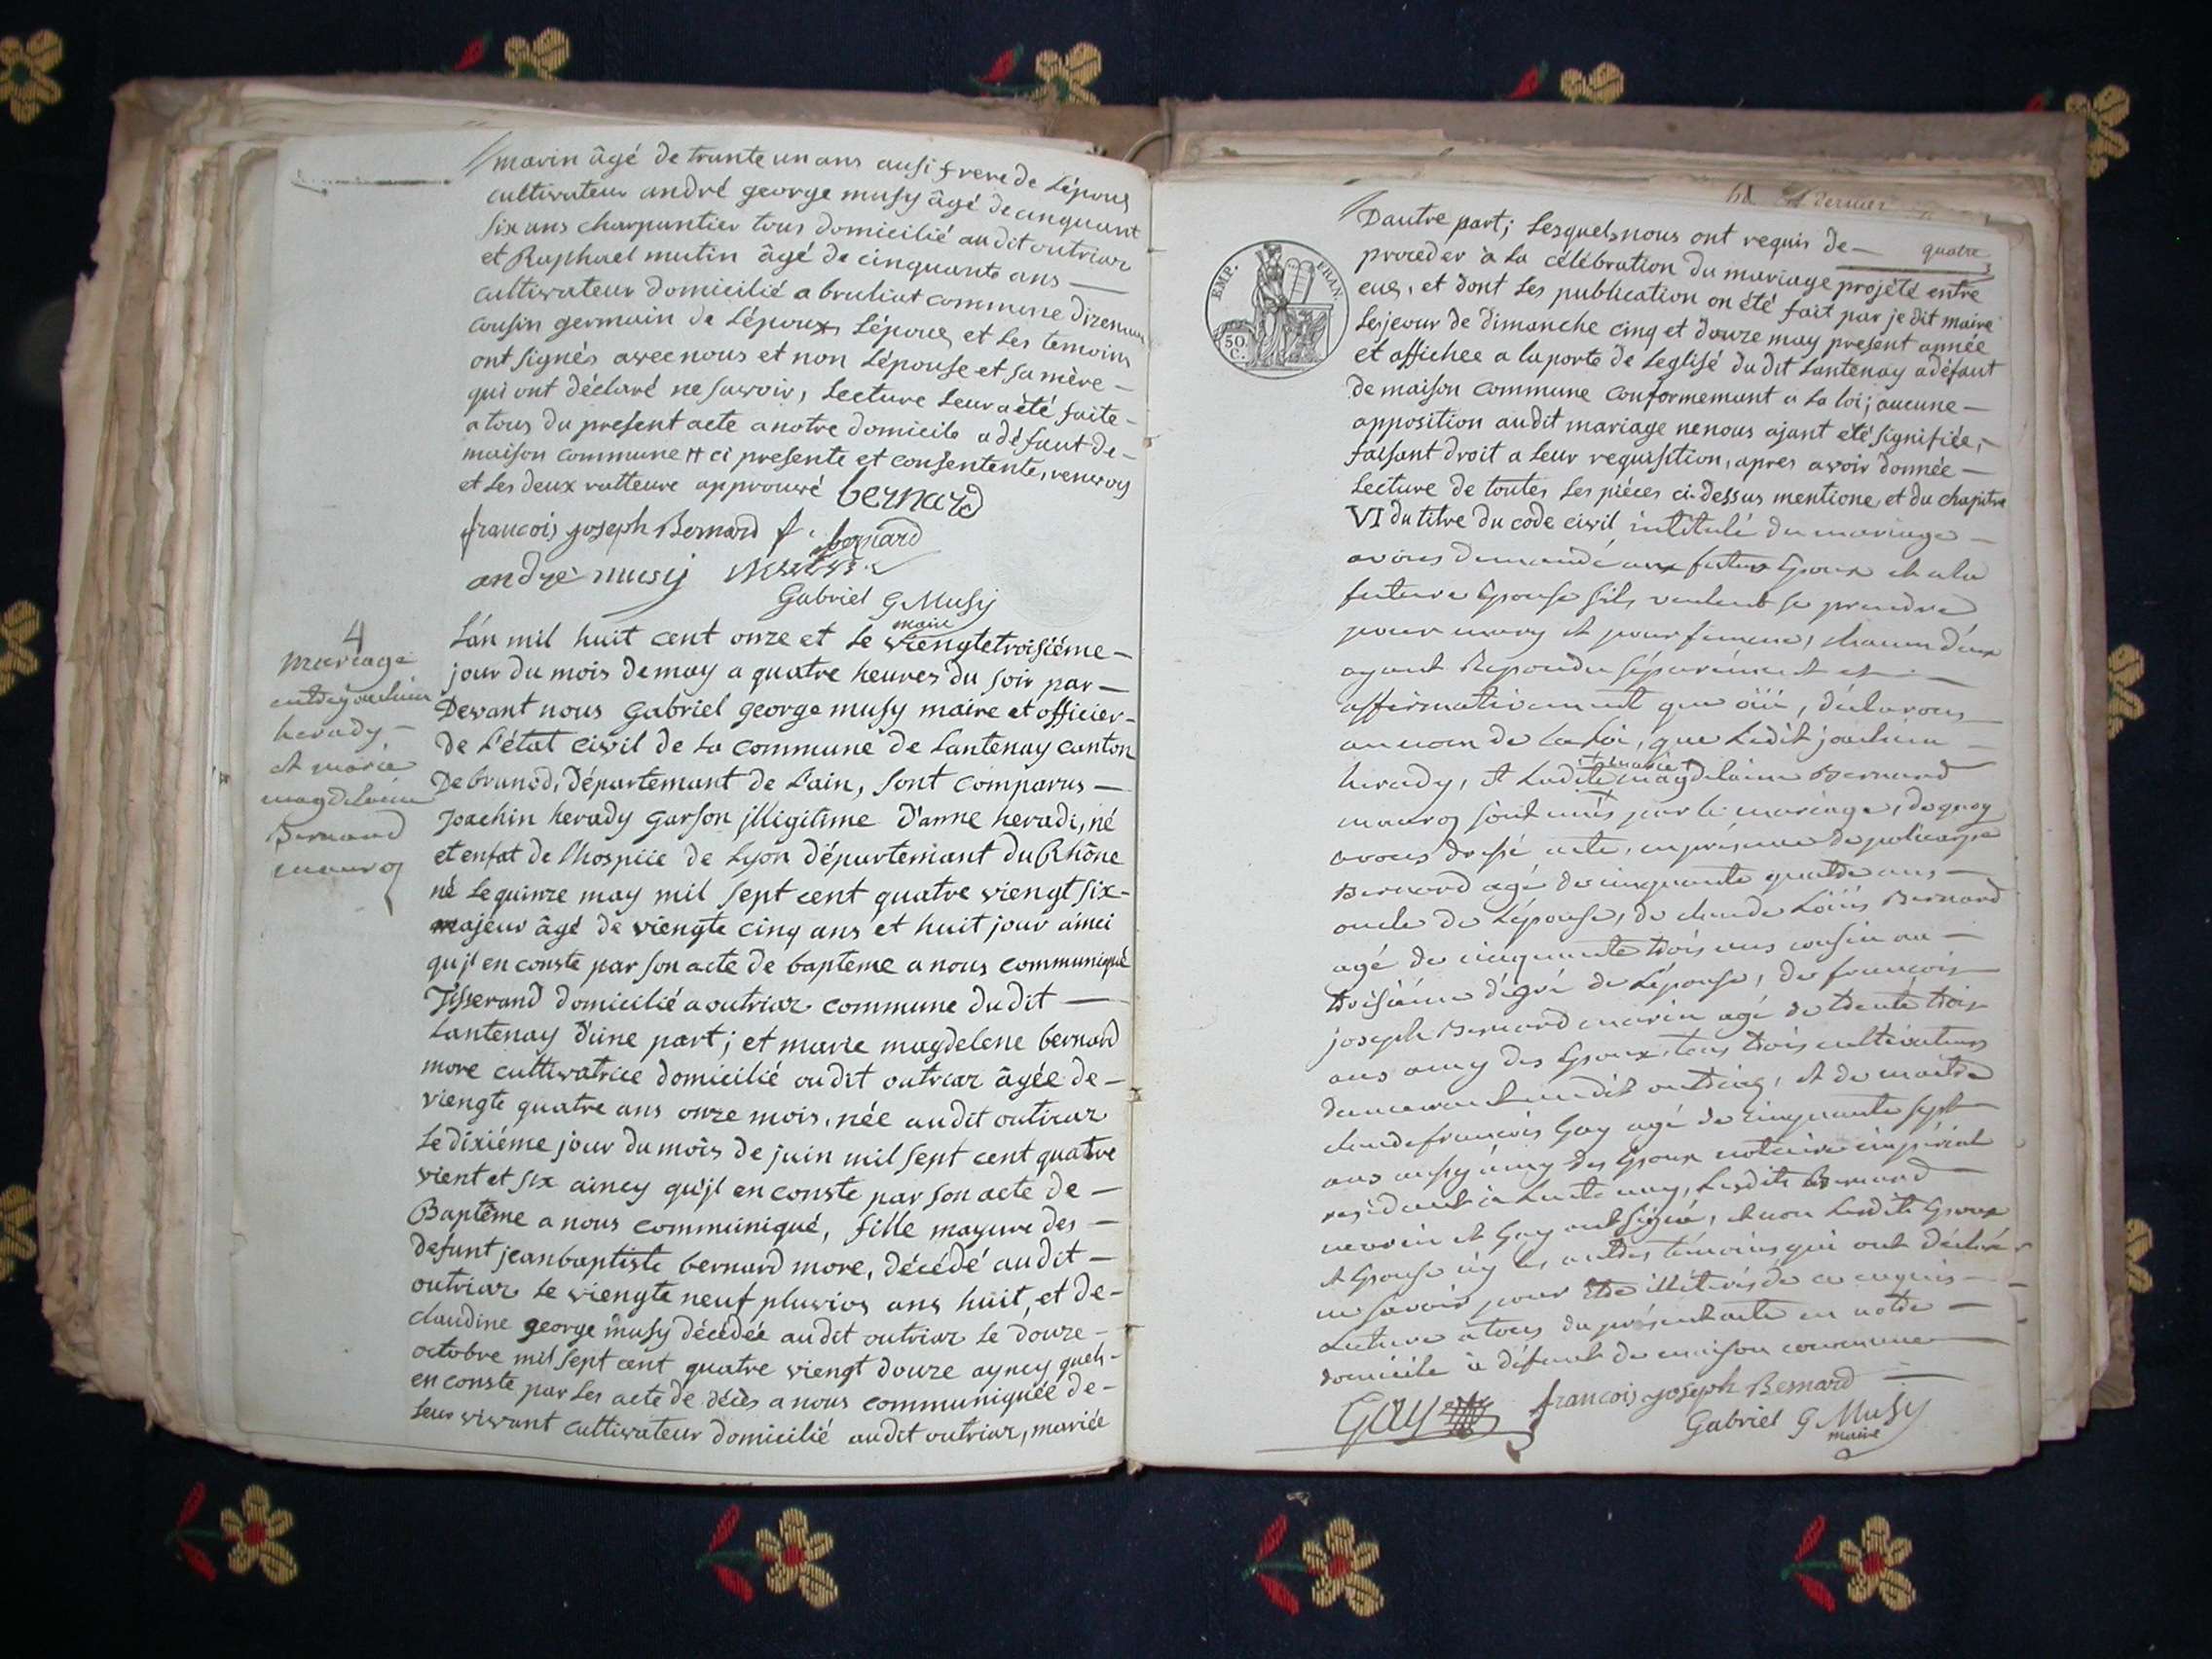 marin âgé de trante un ans ausi frere de Lépoux
cultivateur andré george musy âgé de cinquant
six ans charpantier tous domicilié au dit outriaz
et Raphael mutin âgé de cinquante ans —
cultivateur domicilié a bruliat commune dizenave
cousin germain de Lépoux, Lépoux et Les temoins
ont signés avec nous et non Lépouse et sa mère —
qui ont déclaré ne savoir, Lecture Leur a été faite —
a tous du present acte a notre domicile a défaut de —
maison commune # ci presente et consentente, renvoy
et Les deux ratteure approuvé bernard
francois joseph Bernard f. bernard
andré musy
Gabriel G Musy
maire
4
mariage
entre joachin
herady —
et marie
magdelaine
Bernard
mauroz
Lán mil huit cent onze et Le viengtetroisiéme —
jour du mois de may a quatre heures du soir par —
Devant nous Gabriel george musy maire et officier —
de L'état civil de La commune de Lantenay canton
De brunod, Département de Lain, sont comparus —
Joachin herady garson jlligitime d'anne heradi, né
et enfat de lhospice de Lyon département du Rhône
né Le quinze may mil sept cent quatre viengt six —
majeur âgé de viengte cinq ans et huit jour ainci
qu'jl en conste par son acte de bapteme a nous communiqué
Tisserand domicilié a outriaz commune du dit —
Lantenay d'une part; et marie magdelene bernard
more cultivatrice domicilié au dit outriaz âgée de —
viengte quatre ans onze mois, née au dit outriaz
Le dixiéme jour du mois de juin mil sept cent quatre
vient et six aincy qu'jl en conste par son acte de —
Baptême a nous communiqué, fille mayure des —
defunt jean baptiste bernard more, décédé au dit —
outriaz Le viengte neuf pluvios ans huit, et de —
claudine george musy décédée au dit outriaz Le douze —
octobre mil sept cent quatre viengt douze ayncy queh —
en conste par Les acte de décès a nous communiquée de —
Leur vivant cultivateur domicilié au dit outriaz, mariée
dernier
quatre
EMP. FRAN.
50
C.
D'autre part; Lesquels nous ont requis de —
proceder à La célébration du mariage projété entre
eux, et dont Les publication on été fait par je dit maire
Les jeour de dimanche cinq et douze may present année
et affichee a la porte de Leglisé du dit Lantenay a défaut
de maison commune conformemant a La loi; aucune —
apposition au dit mariage ne nous ajant été signifiée, —
faisant droit a Leur requisition, apres avoir donnée —
Lecture de toutes Les pièces ci-dessus mentione, et du chapitre
VI du titre du code civil intitulé du mariage —
avons demandé aux futur Epoux et a la
future Epouse s'ils veulent se prendre
pour mary et pour femme, chacun d'eux
ayant Repondu séparément et —
affirmativement que oüi, déclarons
au nom de la Loi, que Ledit joachin —
marie
herady, et Ladite magdelaine Bernard
mauroz sont unis par le mariage, de quoy
avons dressé acte, en présence de policarpe
Bernard agé de cinquante quatre ans —
oncle de Lépouse, de claude Loüis Bernard
agé de cinquante trois ans cousin au —
troisième dégré de Lépouse, de francois
joseph Bernard marin agé de trente trois
ans amy des Epoux, tous trois cultivateurs
demeurant audit outriaz, et de maitre
claude francois Gay agé de cinquante sept
ans aussy amy des Epoux notaire impérial
residant à Lantenay, Lesdits Bernard —
marin et Gay ont signé, et non Lesdits Epoux
et Epouse ny les autres témoins qui ont déclaré
ne savoir pour être illétrés de ce enquis —
Lecture à tous du présent acte en notre —
domicile à défaut de maison commune —
Gay francois joseph Bernard —
Gabriel G Musy
maire